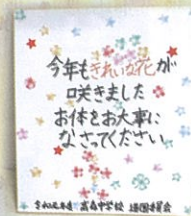 今年もきれいな花が
咲きました
お体をお大事に
なさってください
中学校